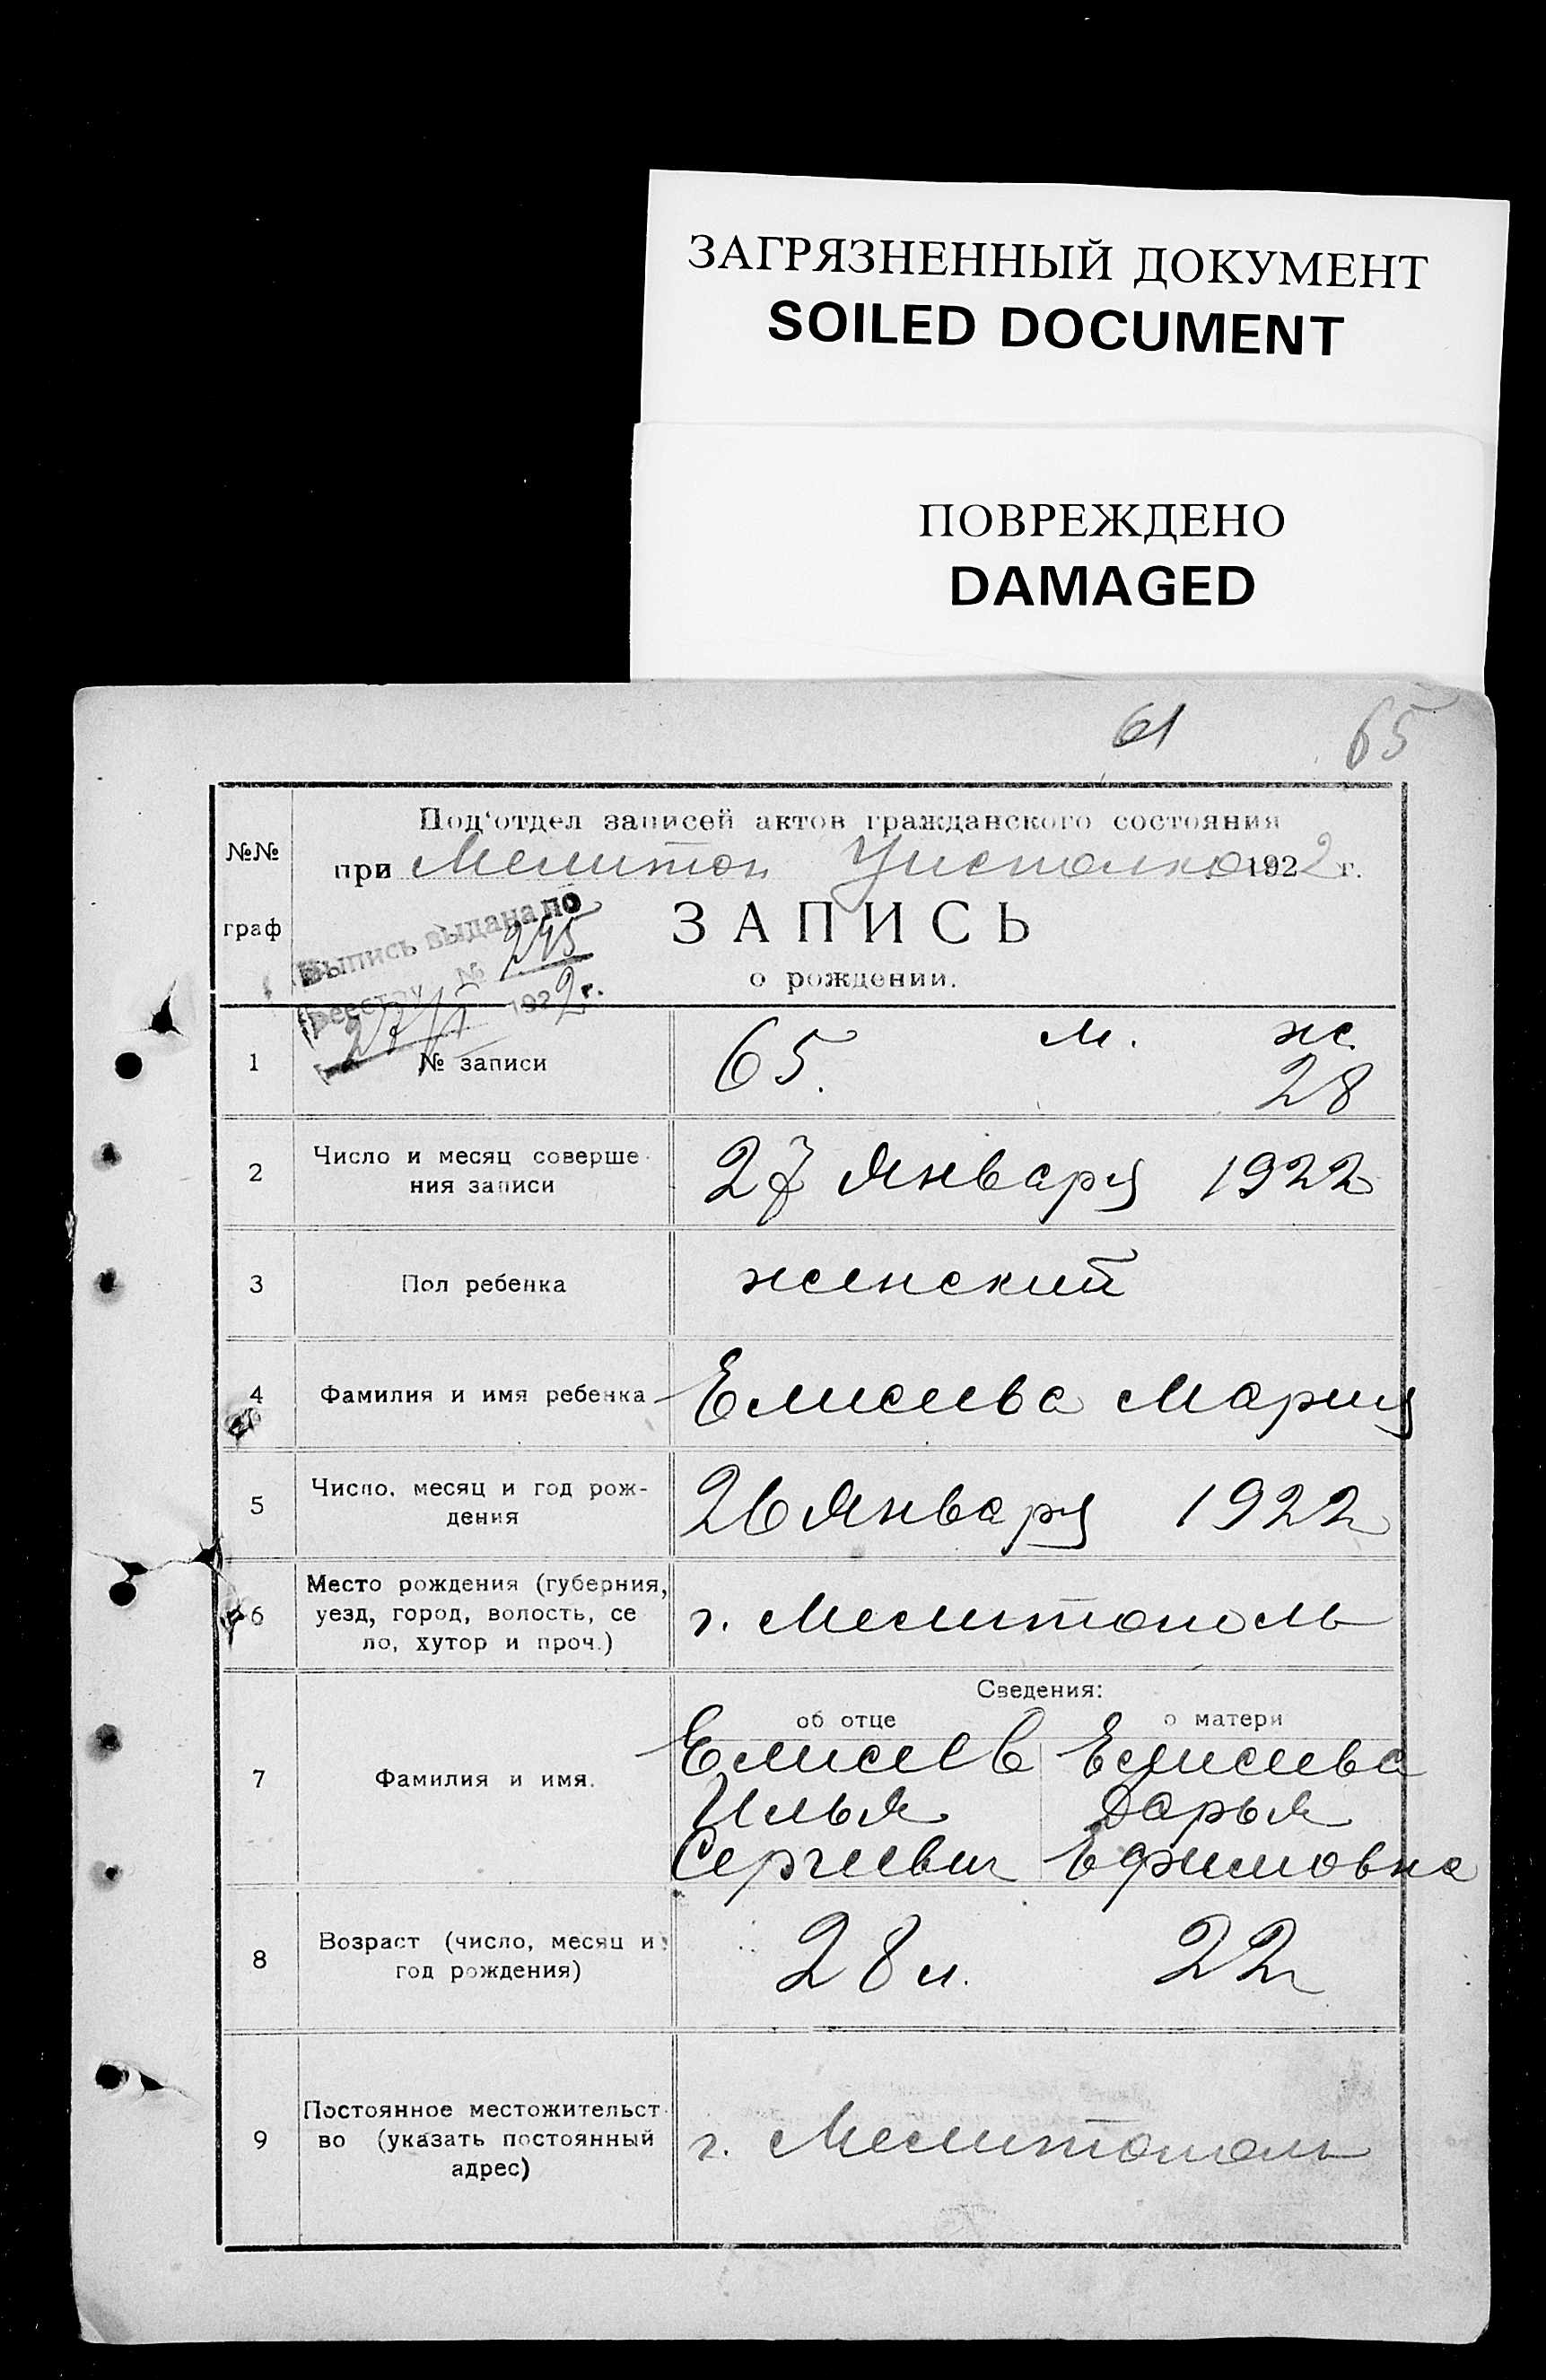 ЗАГРЯЗНЕННЫЙ ДОКУМЕНТ
SOILED DOCUMENT
ПОВРЕЖДЕНО
DAMAGED
61 65
№№
граф
Под‘отдел записей актов гражданского состояния
при Мелитоп Уисполко 1922 г.
ЗАПИСЬ
о рождении.
Выпись выдана по
Реестру № 245
1922 г.
1 № записи 65. м. ж.
28
2 Число и месяц соверше-
ния записи
27 Января 1922
3 Пол ребенка женский
4 Фамилия и имя ребенка Елисеева Мария
5 Число, месяц и год рож-
дения
26 Января 1922
6 Место рождения (губерния,
уезд, город, волость, се
ло, хутор и проч.)
г. Мелитополь
Сведения:
об отце о матери
7 Фамилия и имя.
Елисеев Елисеева
Илья Дарья
Сергеевич Ефимовна
8 Возраст (число, месяц и
год рождения)
28 л. 22
9 Постоянное местожительст-
во (указать постоянный
адрес)
г. Мелитополь